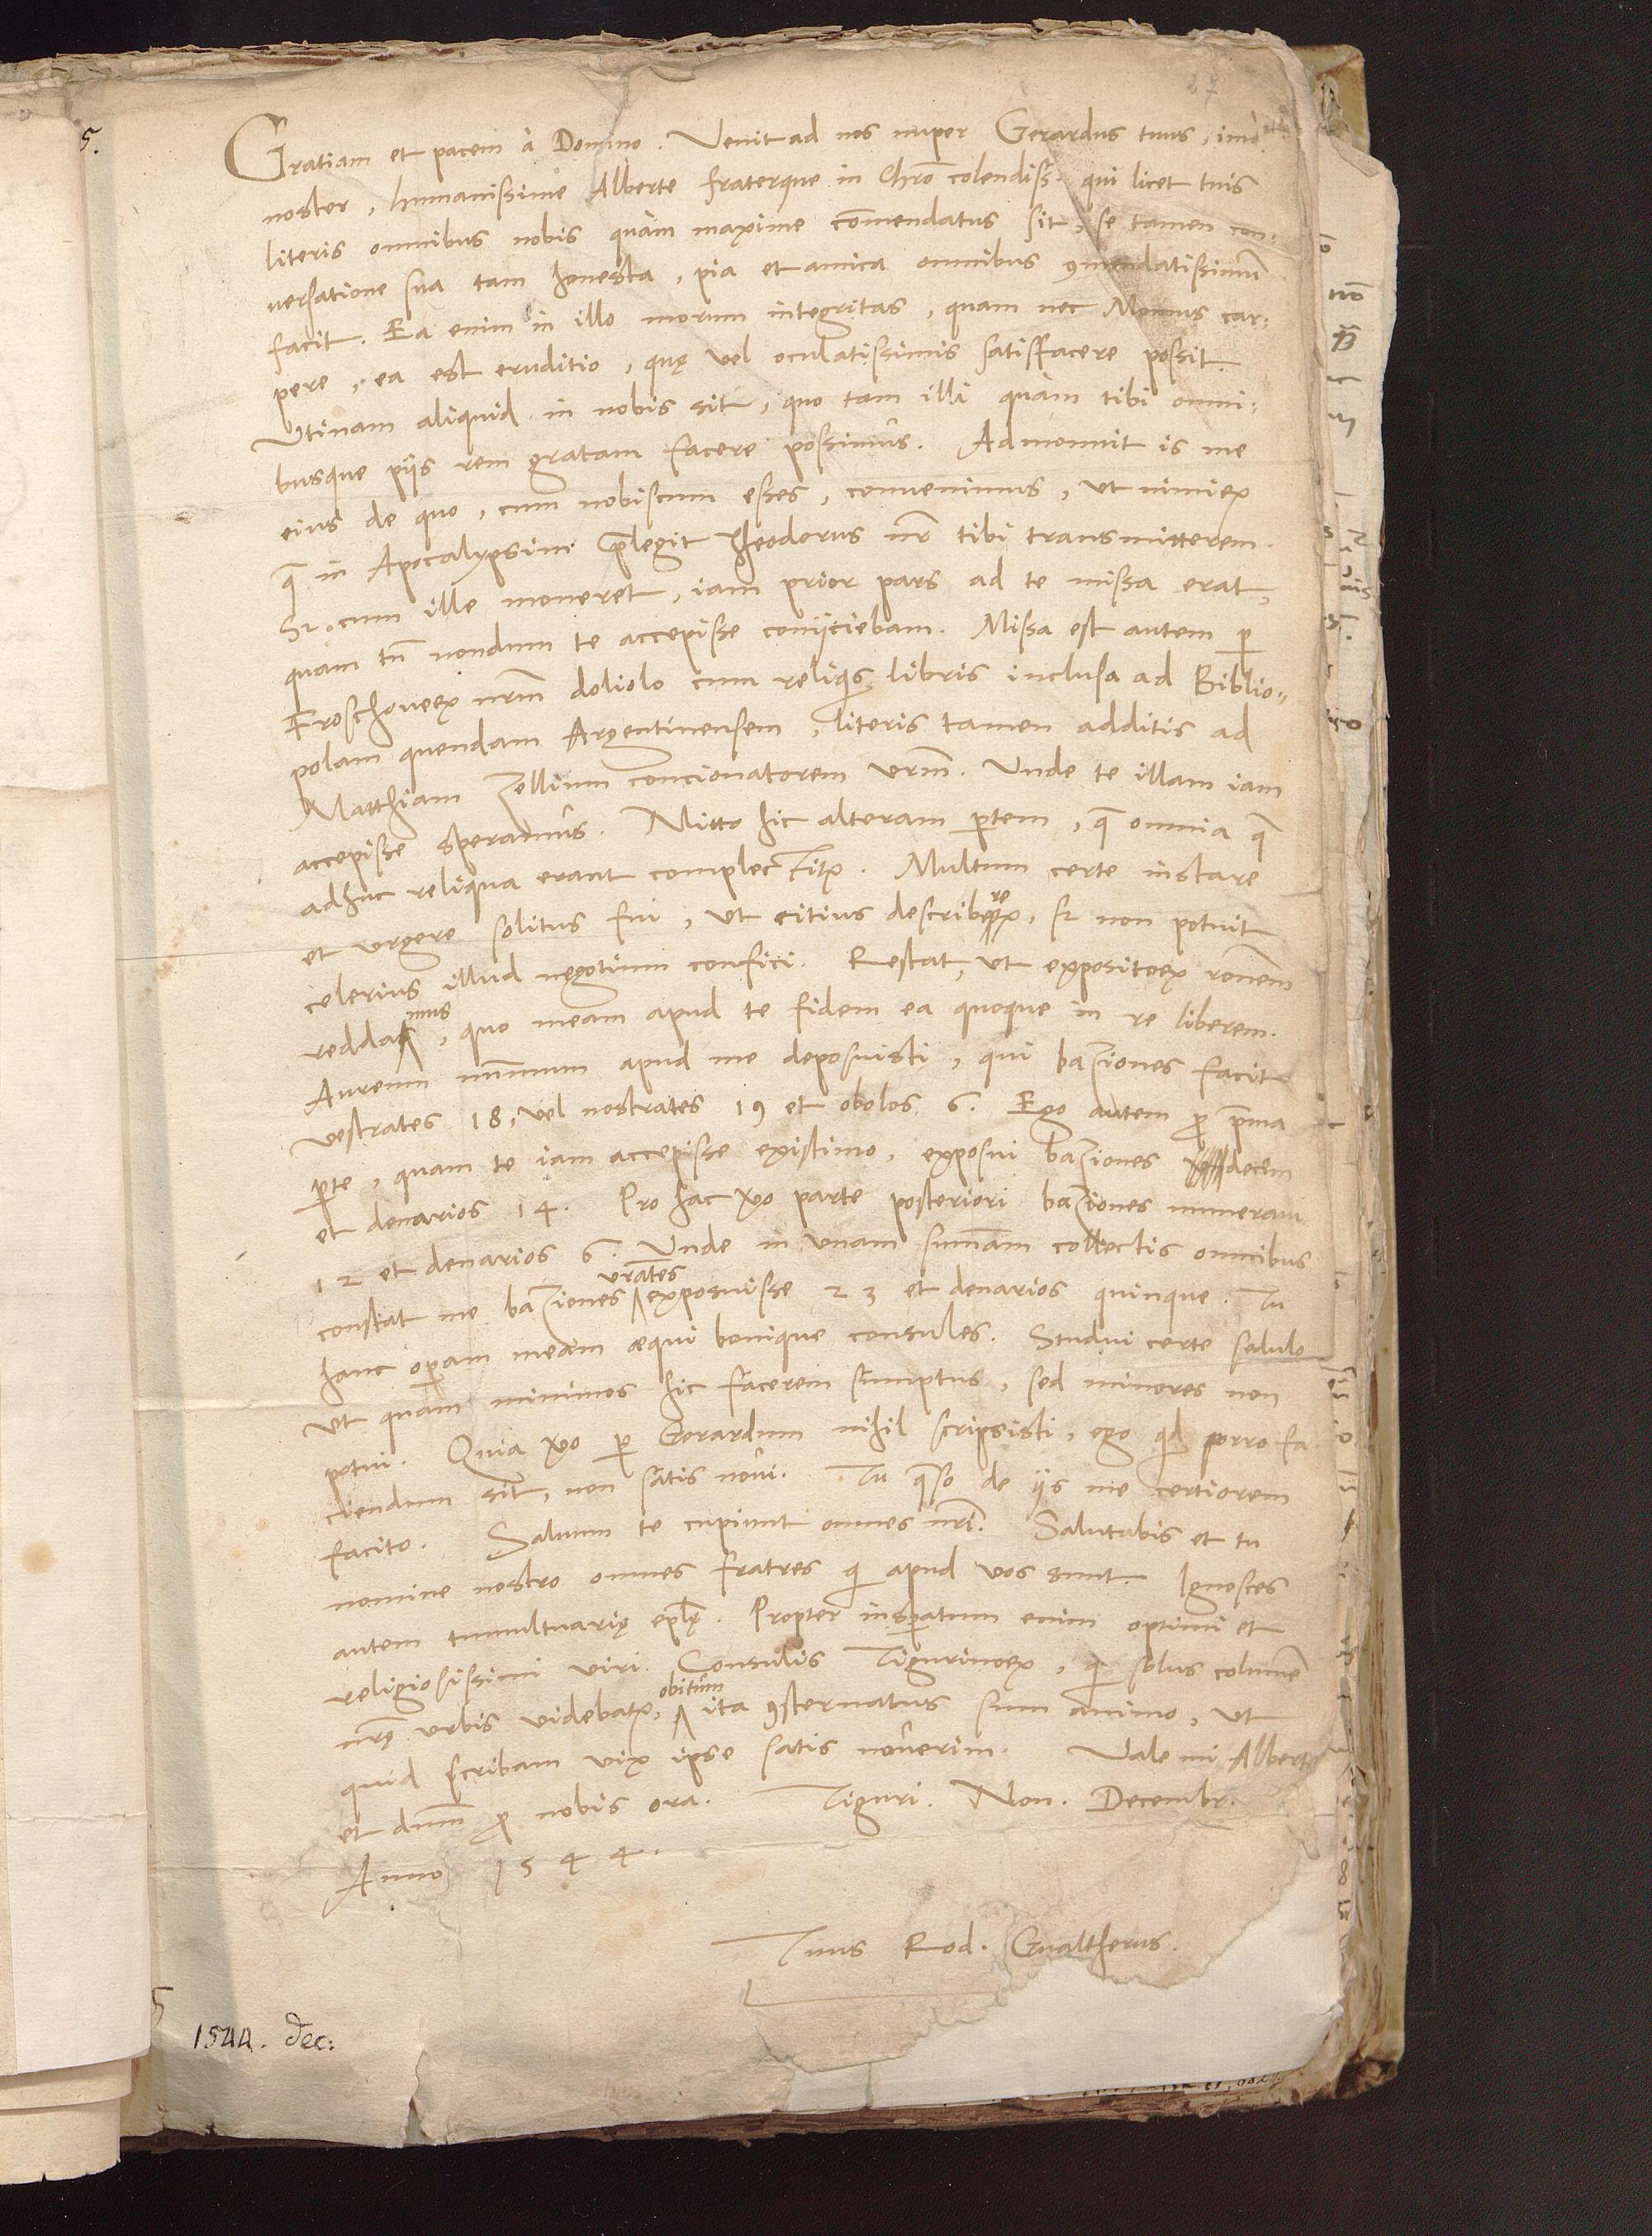 27
5.
Gratiam et pacem à Domino. Venit ad nos nuper Gerardus tuus, imò
noster, humanissime Alberte fraterque in Chr̄o colendiss. qui licet tuis
literis omnibus nobis quàm maxime com̄endatus sit, se tamen con-
uersatione sua tam honesta, pia et amica omnibus ꝯmendatissimū
facit. Ea enim in illo morum integritas, quam nec Momus car-
pere, ea est eruditio, quę vel oculatissimis satisfacere possit.
Vtinam aliquid in nobis sit, quo tam illi quàm tibi omni-
busque piis rem gratam facere possimus. Admonuit is me
eius de quo, cum nobiscum esses, conuenimus, vt nimiꝝ
q̄ in Apocalypsim p̄legit Theodorus nr̄ tibi transmitterem.
Sꝫ cum ille moneret, iam prior pars ad te missa erat,
quam tn̄ nondum te accepisse coniiciebam. Missa est autem ꝑ
Froschoueꝝ nr̄m doliolo cum reliquis libris inclusa ad Biblio-
polam quendam Argentinensem, literis tamen additis ad
Matthiam Zellium concionatorem vr̄m. Unde te illam iam
accepisse speramus. Mitto hic alteram ꝑtem, q̄ omnia q̄
adhuc reliqua erant complectitꝝ. Multum certe instare
et vrgere solitus fui, vt citius describereꝝ, sꝫ non potuit
celerius illud negotium confici. Restat, vt expositoꝝ ron̄em
reddamus, quo meam apud te fidem ea quoque in re liberem.
Aureum num̄um apud me deposuisti, qui baziones facit
vestrates 18, vel nostrates 19 et obolos 6. Ego autem ꝓ p̄ma
ꝑte, quam te iam accepisse existimo, exposui baziones decem
et denarios 14. Pro hac v̄o parte posteriori baziones numeraui
12 et denarios 6. Unde in vnam sum̄am collectis omnibus
constat me baziones vr̄ates exposuisse 23 et denarios quinque. Tu
hanc oꝑam meam æqui bonique consules. Studui certe sedulo
vt quàm minimos hic facerem sumptus, sed minores non
potui. Quia v̄o ꝑ Gerardum nihil scripsisti, ego qd porro fa
ciendum sit, non satis noui. Tu q̄so de iis me certiorem
facito. Saluum te cupiunt omnes nr̄i. Salutabis et tu
nomine nostro omnes fratres qi apud vos sunt. Ignosces
autem tumultuarię ep̄lę. Propter insꝑatum enim optimi et
religiosissimi viri Consulis Tigurinoꝝ, qi solus columē
nr̄ę vrbis videbatꝝ, obitum ita ꝯsternatus sum animo, vt
quid scribam vix ipse satis nouerim. Vale mi Alberte
et dn̄m ꝓ nobis ora. Tiguri. Non. Decembr.
Anno 1544.
Tuus Rod. Gualtherus.
1544. Dec: